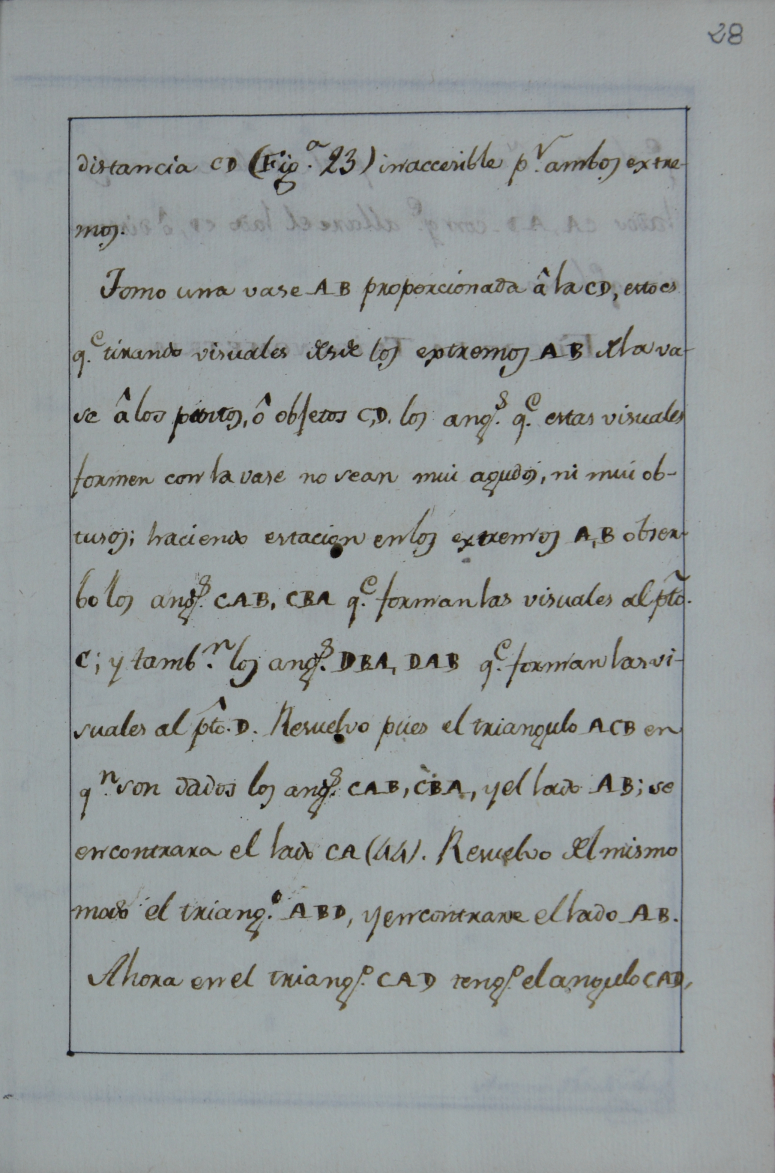 28
distancia CD (Fig.ª 23) inaccesible p.r ambos extre-
mos.
Tomo una vase AB proporcionada â la CD, esto es
q.e tirando visuales desde los extremos AB de la va-
se â los puntos, ô objetos C,D. los ang.s q.e estas visuales
formen con la vase no sean mui agudos, ni mui ob-
tusos; haciendo estacion en los extremos A,B obser-
bo los ang.s CAB, CBA q.e forman las visuales al pto.
C; y tamb.n los ang.s DBA, DAB q.e forman las vi-
suales al pto. D. Resuelvo pues el triangulo ACB en
q.n son dados los ang.s CAB, CBA, y el lado AB; se
encontrara el lado CA (44). Resuelvo del mismo
modo el triang.o ABD, y encontrare el lado AB.
Ahora en el triang.o CAD teng.o el angulo CAD,